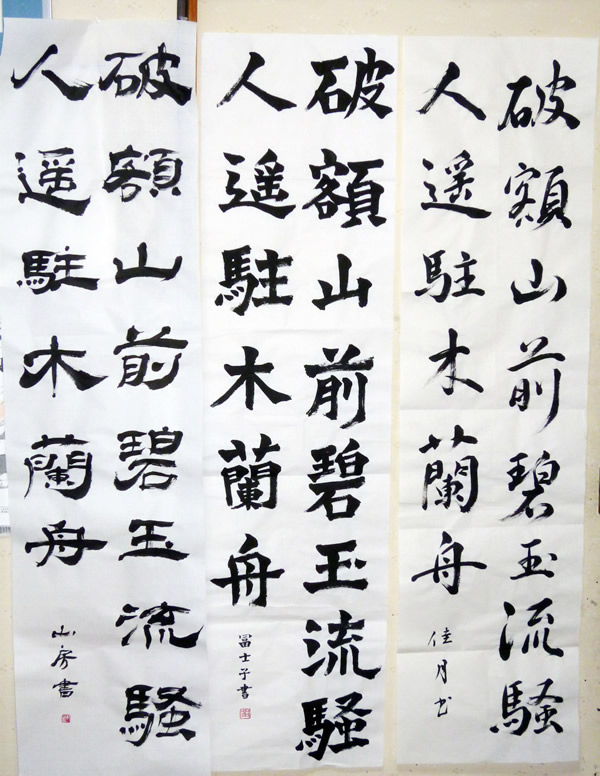 破額山前碧玉流騷
人遥駐木蘭舟
佳月书
破額山前碧玉流騷
人遥駐木蘭舟
冨士子書
破額山前碧玉流騷
人遥駐木蘭舟
山房書